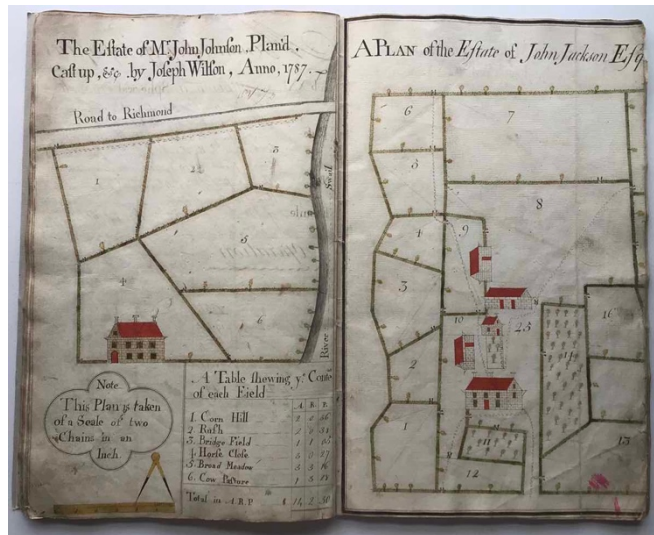 The Eſtate of Mr. John Johnſon, Plan'd.
Caſt up, &c. by Joſeph Wilſon, Anno, 1787.
Road to Richmond
1
2
3
4
5
6
River
Note.
This Plan is taken
of a Scale of two
Chains in an
Inch.
A Table ſhewing ye.
of each Field
A R P
1. Corn Hill
2
3. Bridge Field
4. Horſe Cloſe
5. Broad Meadow
6. Cow Paſture
Total in A R P
A PLAN of the Eſtate of John Jackson Eſq
6
7
5
8
4
9
3
10
25
16
14
2
1
11
12
13